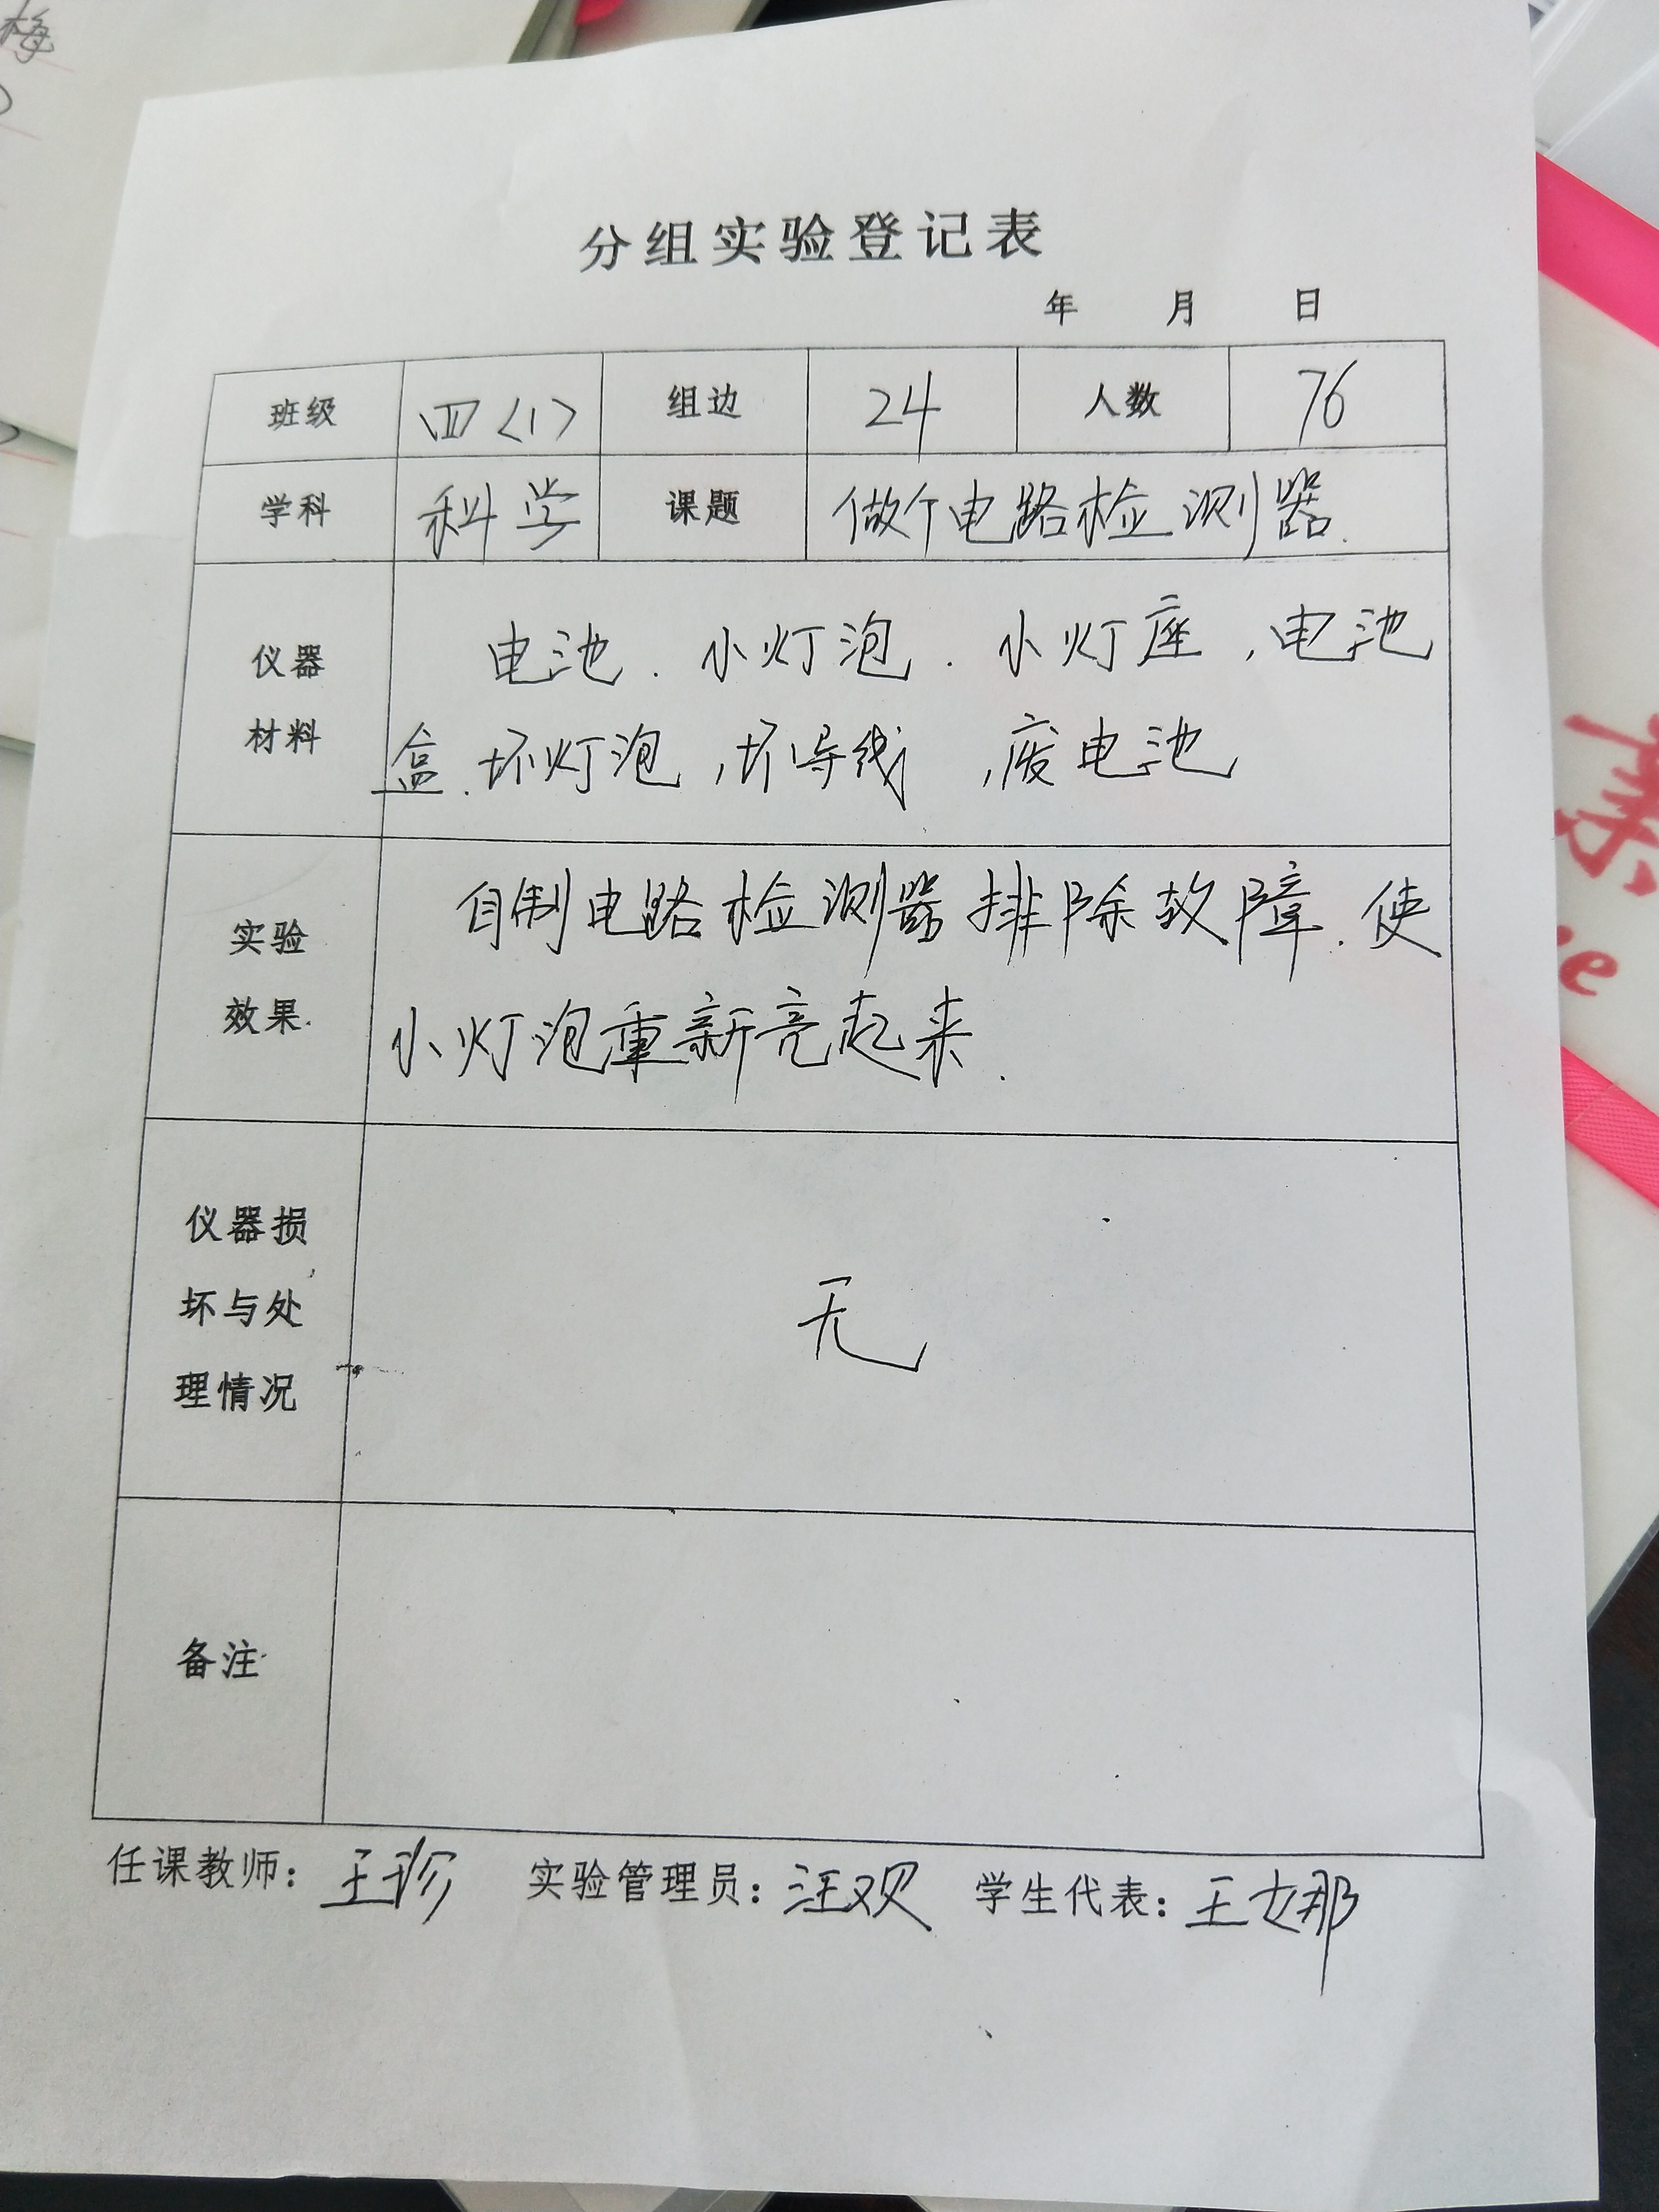 梅
分组实验登记表
年 月 日
班级 四〈1〉 组边 24 人数 76
学科 科学 课题 做个电路检测器.
仪器
材料
电池.小灯泡.小灯座,电池
盒.坏灯泡,坏导线,废电池
实验
效果
自制电路检测器排除故障.使
小灯泡重新亮起来.
仪器损
坏与处
理情况
无
备注
任课教师: 王珍 实验管理员: 汪双 学生代表: 王女那